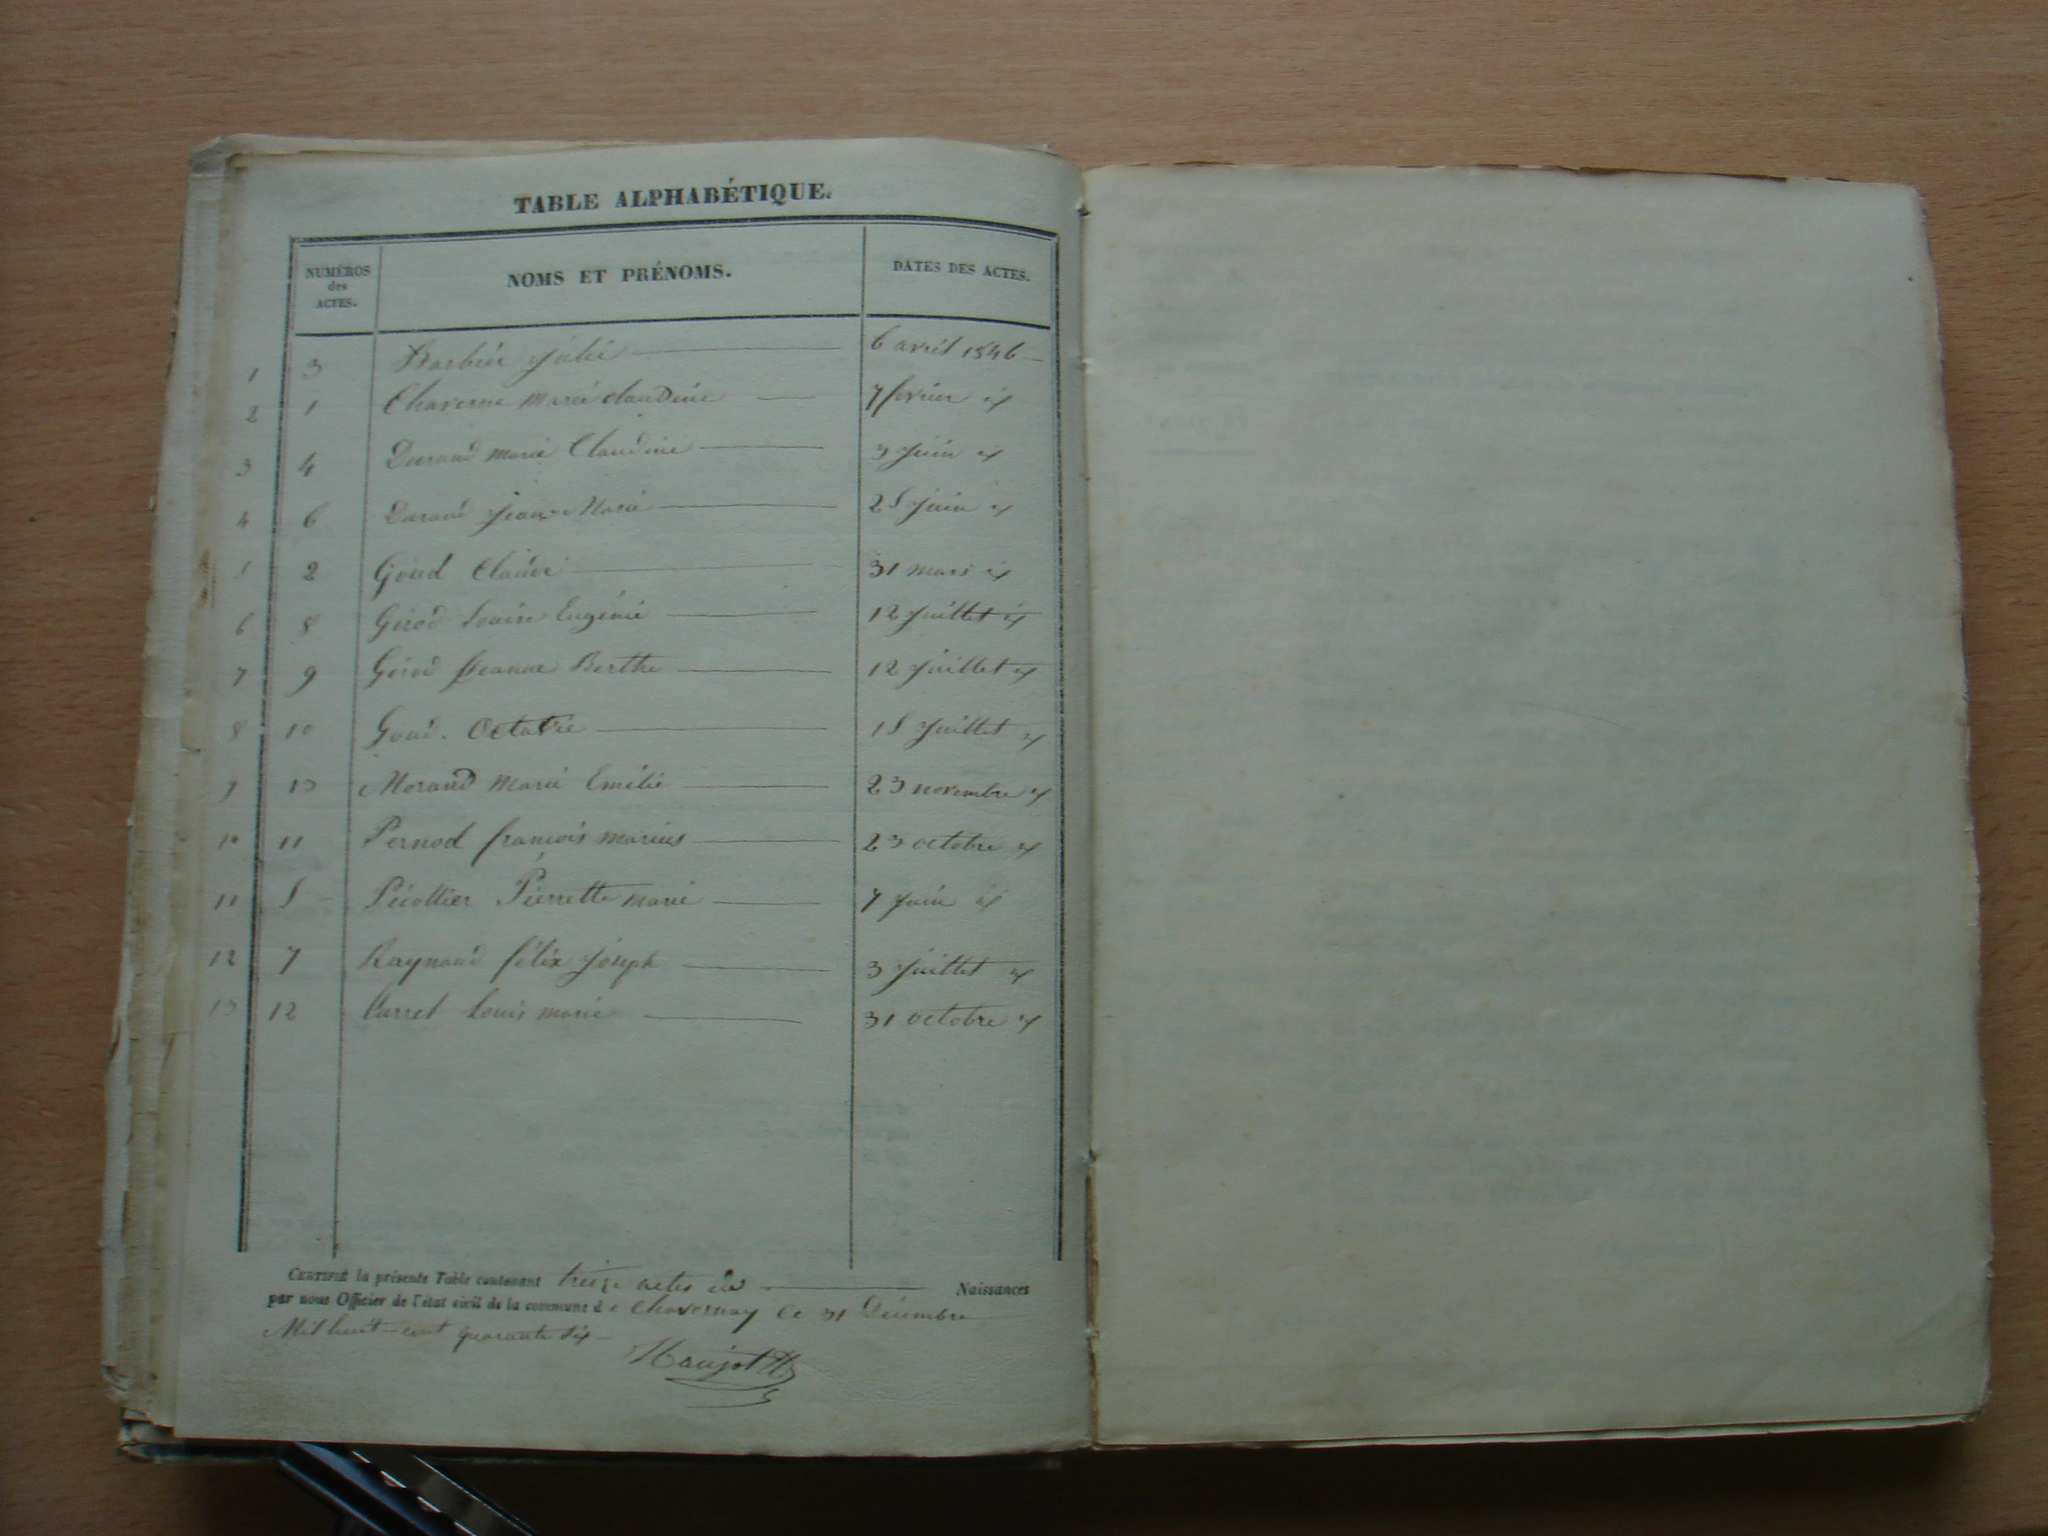 TABLE ALPHABÉTIQUE.
NUMÉROS des ACTES. NOMS ET PRÉNOMS. DATES DES ACTES.
1 3 Barbier Julie 6 avril 1846
2 1 Chaverne Marie claudine 7 fevrier id
3 4 Durand marie Claudine 3 Juin id
4 6 Durand Jean-Marie 25 Juin id
5 2 Girod Claude 31 mars id
6 8 Girod Louise Eugénie 12 Juillet id
7 9 Girod Jeanne Berthe 12 Juillet id
8 10 Girod. Octavie 15 Juillet id
9 13 Morand Marie Emélie 23 novembre id
10 11 Pernod françois marius 23 octobre id
11 5 Pierrette marie 7 Juin id
12 7 Raynaud félix Joseph 3 Juillet id
13 12 Louis marie 31 octobre id
CERTIFIÉ la présente Table contenant treize actes de Naissances
par nous Officier de l'état civil de la commune de Chavornay le 31 Décembre
Mil huit-cent quarante six